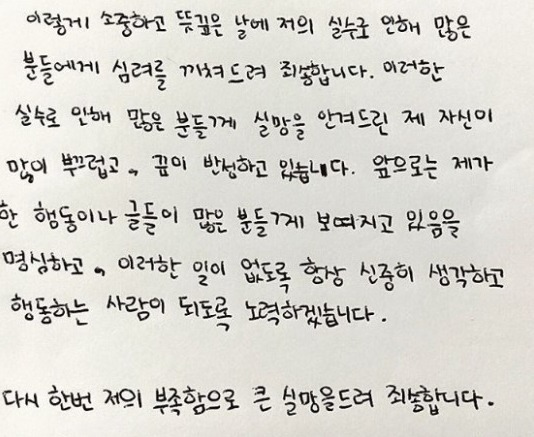 이렇게 소중하고 뜻깊은 날에 저의 실수로 인해 많은
분들에게 심려를 끼쳐드려 죄송합니다. 이러한
실수로 인해 많은 분들께 실망을 안겨드린 제 자신이
많이 부끄럽고, 깊이 반성하고 있습니다. 앞으로는 제가
한 행동이나 글들이 많은 분들께 보여지고 있음을
명심하고, 이러한 일이 없도록 항상 신중히 생각하고
행동하는 사람이 되도록 노력하겠습니다.
다시 한번 저의 부족함으로 큰 실망을드려 죄송합니다.